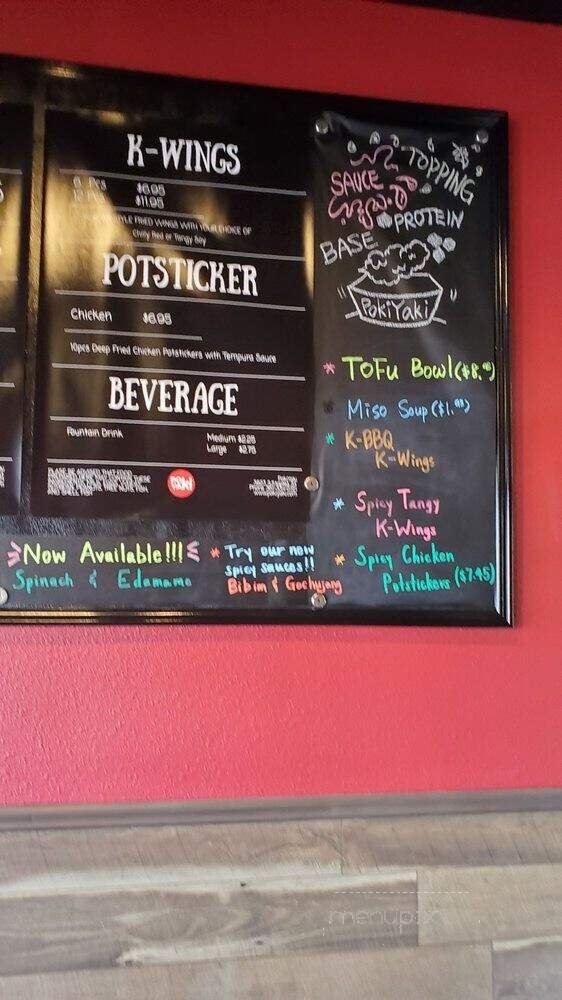 K-WINGS
6 Pcs $6.95
12 $11.95
STYLE FRIED WINGS WITH YOUR CHOICE OF
Chilly Red or Tangy Soy
POTSTICKER
Chicken $6.95
10pcs Deep Fried Chicken Potstickers with Tempura Sauce
BEVERAGE
Fountain Drink Medium $2.25
Large $2.75
TOPPING
SAUCE
PROTEIN
BASE
PokiYaki
* ToFu Bowl
* Miso Soup
* K-BBQ
K-Wings
* Spicy Tangy
K-Wings
* Spicy Chicken
Potstickers ($7.45)
Now Available!!!
Spinach & Edamame
* Try our new
spicy sauces!!
Bibim & Gochujang
menupix